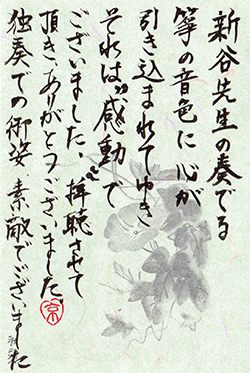 新谷先生の奏でる
箏の音色に心が
引き込まれてゆき
それは“感動”で
ございました。拝聴させて
頂き、ありがとうございました。
独奏での御姿 素敵でございました
京